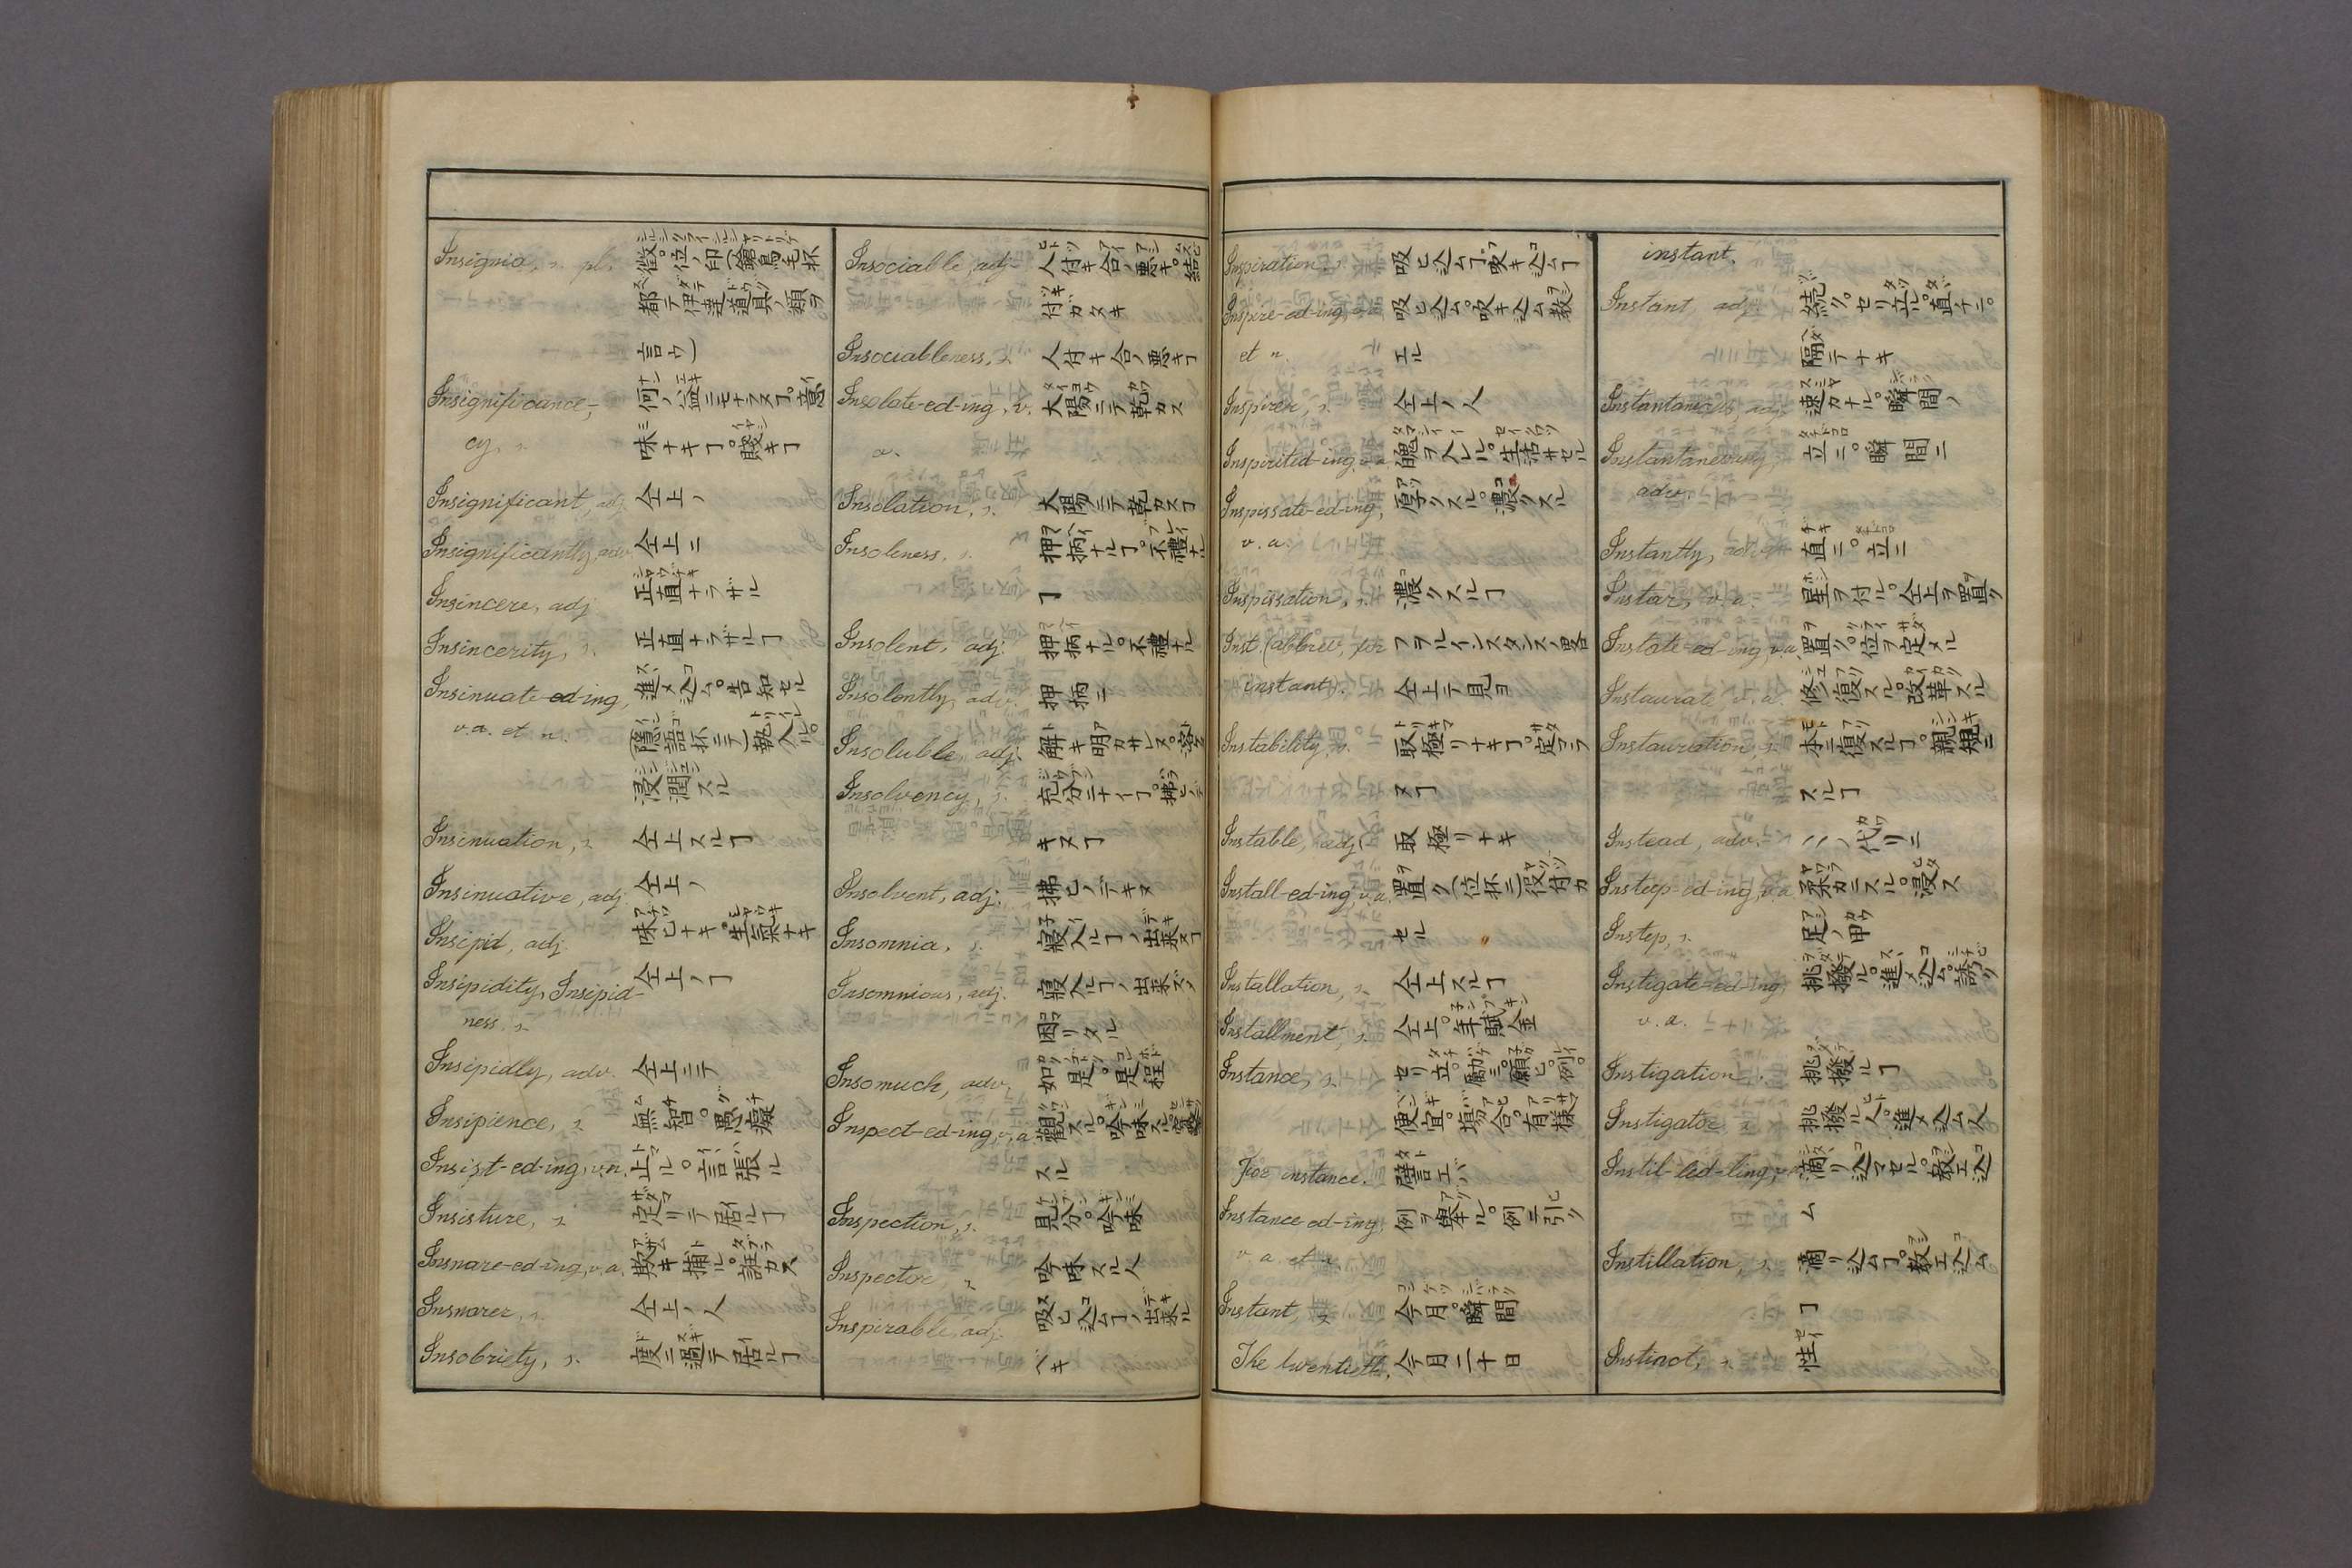 Insignia, s. pl. 徴。位ノ印(鎗鳥毛杯
都テ伊達道具ノ類ヲ
言ウ)
Insignificance,- 何ノ益ニモナラヌヿ。意
cy, s. 味ナキヿ。賤キヿ
Insignificant, adj. 仝上ノ
Insignificantly, adv. 仝上ニ
Insincere, adj. 正直ナラザル
Insincerity, s. 正直ナラザルヿ
Insinuate-ed-ing, 進メ込ム。告知セル
v.a. et n. (隠語杯ニテ)執入ル。
浸潤スル
Insinuation, s. 仝上スルヿ
Insinuative, adj. 仝上ノ
Insipid, adj. 味ヒナキ。生氣ナキ
Insipidity, Insipid- 仝上ノヿ
ness, s.
Insipidly, adv. 仝上ニテ
Insipience, s. 無智。愚癡
Insist-ed-ing, v.n. 止マル。言張ル
Insisture, s. 定リテ居ルヿ
Insnare-ed-ing, v.a. 欺キ捕ル。誑カス
Insnarer, s. 仝上ノ人
Insobriety, s. 度ニ過テ居ルヿ
Insociable, adj. 人付キ合ノ悪キ。結ビ
付ガタキ
Insociableness, s. 人付キ合ノ悪キヿ
Insolate-ed-ing, v. 太陽ニテ乾カス
a.
Insolation, s. 太陽ニテ乾カスヿ
Insoleness, s. 押柄ナルヿ。不禮ナル
ヿ
Insolent, adj. 押柄ナル。不禮ナル
Insolently, adv. 押柄ニ
Insoluble, adj. 解キ明カサレヌ。
Insolvency, s. 充分ニナイヿ。拂ヒノデ
キヌヿ
Insolvent, adj. 拂ヒノデキヌ
Insomnia, s. 寢入ルヿノ出来ヌヿ
Insomnious, adj. 寢入ルヿノ出来ズ
困リタル
Insomuch, adv. 如是。是程
Inspect-ed-ing, v.a. 觀スル。吟味スル。
スル
Inspection, s. 見分。吟味
Inspector, s. 吟味スル人
Inspirable, adj. 吸ヒ込ムヿノ出来ル
ベキ
Inspiration, s. 吸ヒ込ムヿ。吹キ込ムヿ
Inspire-ed-ing, v.a. 吸ヒ込ム。吹キ込ム。教
et n. エル
Inspirer, s. 仝上ノ人
Inspirited-ing, v.a. 魂ヲ入レル。生活サセル
Inspissate-ed-ing, 厚クスル。濃クスル
v.a.
Inspissation, s. 濃クスルヿ
Inst. (abbrev, for フヲルインスタンスノ畧
instant). 仝上テ見ヨ
Instability, s. 取極リナキヿ。定マラ
ヌヿ
Instable, adj. 取極リナキ
Install-ed-ing, v.a. 置ク(位杯ニ)役付カ
セル
Installation, s. 仝上スルヿ
Installment, s. 仝上。年賦金
Instance, s. セリ立。勵ミ。願ヒ。例。
便宜。場合。有様
For instance. 譬エバ
Instance-ed-ing, 例ヲ舉ル。例ニ引ク
v.a. et n.
Instant, s. 今月。瞬間
The twentieth, 今月二十日
instant.
Instant, adj. 続ク。セリ立ル。直ナニ。
隔テナキ
Instantaneous, adj. 速カナル。瞬間ノ
Instantaneously, 立ニ。瞬間ニ
adv.
Instantly, adv. 直ニ。立ニ
Instar, v.a. 星ヲ付ル。仝上ヲ置ク
Instate-ed-ing, v.a. 置ク。位ヲ定メル
Instaurate, v.a. 修復スル。改革スル
Instauration, s. 本ニ復スルヿ。親規ニ
スルヿ
Instead, adv. ハノ代リニ
Insteep-ed-ing, v.a. 柔カニスル。浸ス
Instep, s. 足ノ甲
Instigate-ed-ing, 挑撥ル。進メ込ム。誘ク
v.a.
Instigation, s. 挑撥ルヿ
Instigator, s. 挑撥ル人。進メ込ム人
Instil-led-ling, v.a. 滴リ込マセル。教エ込
ム
Instillation, s. 滴リ込ムヿ。教エ込ム
ヿ
Instinct, s. 性